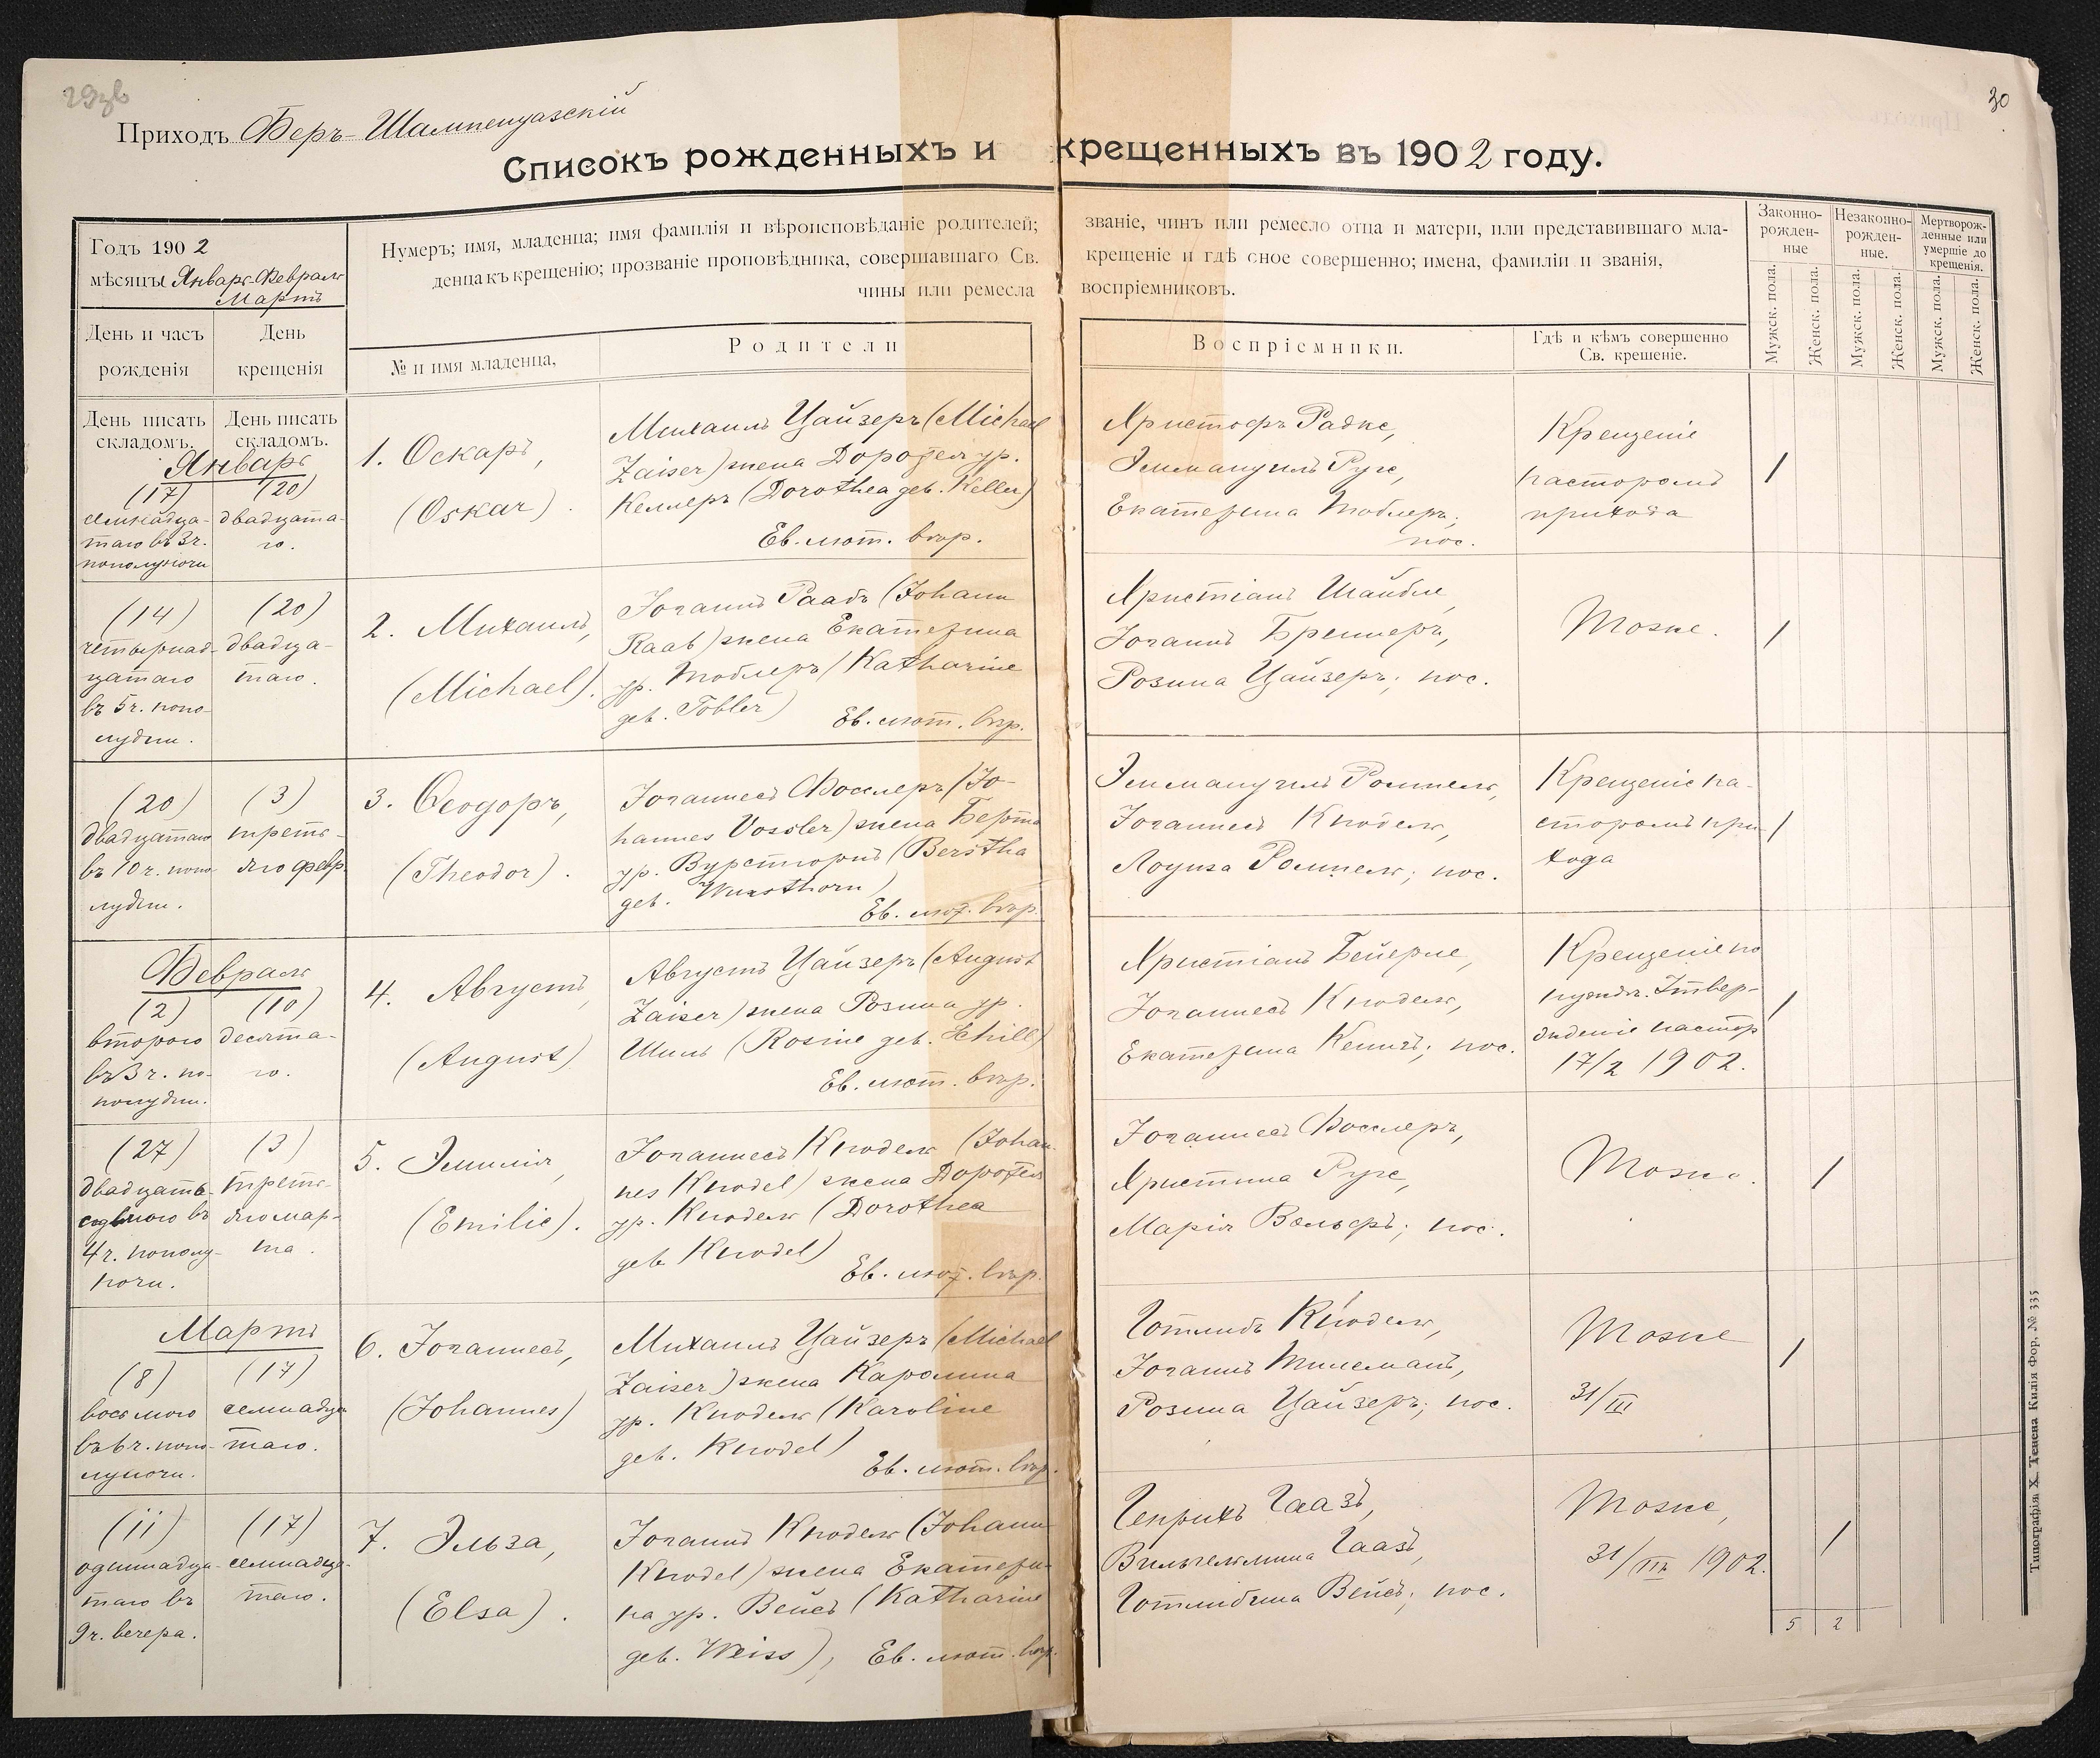 30
Приходъ Феръ-Шампенуазскій
Списокъ рожденныхъ и крещенныхъ въ 1902 году.
Годъ 1902
мѣсяцы Январь-Февраль
Мартъ
День и часъ
рожденія
День
крещенія
Нумеръ; имя, младенца; имя фамилія и вѣроисповѣданіе родителей; званіе, чинъ или ремесло отца и матери, или представившаго мла-
денца къ крещенію; прозваніе проповѣдника, совершавшаго Св. крещеніе и гдѣ оное совершенно; имена, фамиліи и званія,
чины или ремесла воспріемниковъ.
№ и имя младенца,
Родители
Воспріемники.
Гдѣ и кѣмъ совершенно
Св. крешеніе.
Законно-
рожден-
ные
Незаконно-
рожден-
ные.
Мертворож-
денные или
умершіе до
крещенія.
Мужск. пола.
Женск. пола.
Мужск. пола.
Женск. пола.
Мужск. пола.
Женск. пола.
День писать
складомъ.
День писать
складомъ.
Январь
(17)
семнадца-
таго въ 3 ч.
пополуночи
(20)
двадцата-
го.
1. Оскаръ,
(Oskar).
Михаилъ Цайзеръ (Michael
Zaiser) жена Доротея ур.
Келлеръ (Dorothea geb. Keller)
Ев. лют. вѣр.
Христофъ Радке,
Эммануилъ Руге,
Екатерина Тоблеръ;
пос.
Крещеніе
пасторомъ
прихода
/
(14)
четырнад-
цатаго
въ 5 ч. попо-
лудни.
(20)
двадца-
таго.
2. Михаилъ,
(Michael).
Іоганнъ Раабъ (Johann
Raab) жена Екатерина
ур. Тоблеръ (Katharine
geb. Tobler)
Ев. лют. вѣр.
Христіанъ Шайбле,
Іоганнъ Бреннеръ,
Розина Цайзеръ; пос.
Тоже.
/
(20)
двадцатаго
въ 10 ч. попо-
лудни.
(3)
треть-
яго февр.
3. Ѳеодоръ,
(Theodor).
Іоганнесъ Фосслеръ (Jo-
hannes Vossler) жена Берта
ур. Вурсторнъ (Berstha
geb. Wursthorn)
Ев. лют. вѣр.
Эммануилъ Роммель,
Іоганнесъ Кнодель,
Лоуиза Роммель; пос.
Крещеніе па-
сторомъ при-
хода
/
Февраль
(2)
второго
въ 3 ч. по-
полудни.
(10)
десята-
го.
4. Августъ,
(August)
Августъ Цайзеръ (August
Zaiser) жена Розина ур.
Шилъ (Rosine geb. Schill)
Ев. лют. вѣр.
Христіанъ Бейерле,
Іоганнесъ Кнодель,
Екатерина Кеничъ; пос.
Крещеніе по
нуждѣ. Утвер-
жденіе пастор
17/2 1902.
/
(27)
двадцать-
седьмого въ
4 ч. пополу-
ночи.
(3)
треть-
яго мар-
та.
5. Эмилія,
(Emilie).
Іоганнесъ Кнодель (Johan-
nes Knodel) жена Доротея
ур. Кнодель (Dorothea
geb. Knodel)
Ев. лют. вѣр.
Іоганнесъ Фосслеръ,
Христина Руге,
Марія Вольфъ; пос.
Тоже.
/
Мартъ
(8)
восьмого
въ 6 ч. попо-
луночи.
(17)
семнадца-
таго.
6. Іоганнесъ,
(Johannes)
Михаилъ Цайзеръ (Michael
Zaiser) жена Каролина
ур. Кнодель (Karoline
geb. Knodel)
Ев. лют. вѣр.
Готлибъ Кнодель,
Іоганнъ Тилеманъ,
Розина Цайзеръ; пос.
Тоже
31/III
/
(11)
одиннадца-
таго въ
9 ч. вечера.
(17)
семнадца-
таго.
7. Эльза,
(Elsa).
Іоганнъ Кнодель (Johann
Knodel) жена Екатери-
на ур. Вейсъ (Katharine
geb. Weiss), Ев. лют. вѣр.
Генрихъ Гаазъ,
Вильгельмина Гаазъ,
Готлибина Вейсъ; пос.
Тоже,
31/III 1902.
/
5 2
Типографія Х. Тенева Килія фор. № 335